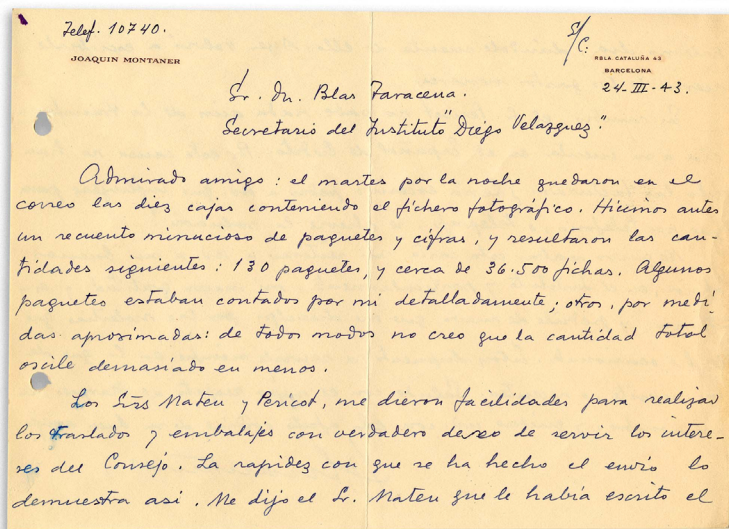 Telef. 10740.
JOAQUIN MONTANER
S/C:
RBLA CATALUÑA 43
BARCELONA
24-III-43.
Sr. Dn. Blas Taracena.
Secretario del Instituto "Diego Velazquez".
Admirado amigo: el martes por la noche quedaron en el
correo las diez cajas conteniendo el fichero fotográfico. Hicimos antes
un recuento minucioso de paquetes y cifras, y resultaron las can-
tidades siguientes: 130 paquetes, y cerca de 36.500 fichas. Algunos
paquetes estaban contados por mi detalladamente; otros, por medi-
das aproximadas: de todos modos no creo que la cantidad total
oscile demasiado en menos.
Los Srs Mateu y Pericot, me dieron facilidades para realizar
los traslados y embalajes con verdadero deseo de servir los intere-
ses del Consejo. La rapidez con que se ha hecho el envio lo
demuestra asi. Me dijo el Sr. Mateu que le había escrito el